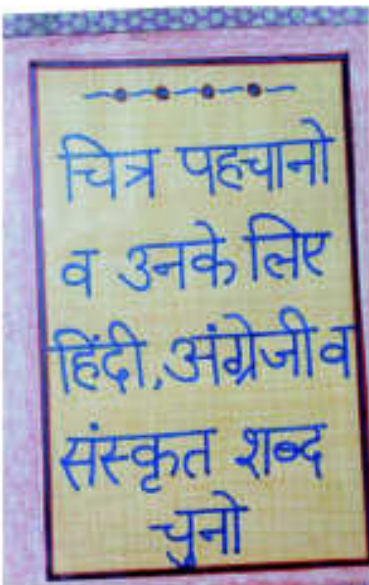 चित्र पहचानो
व उनके लिए
हिंदी,अंग्रेजी व
संस्कृत शब्द
चुनो